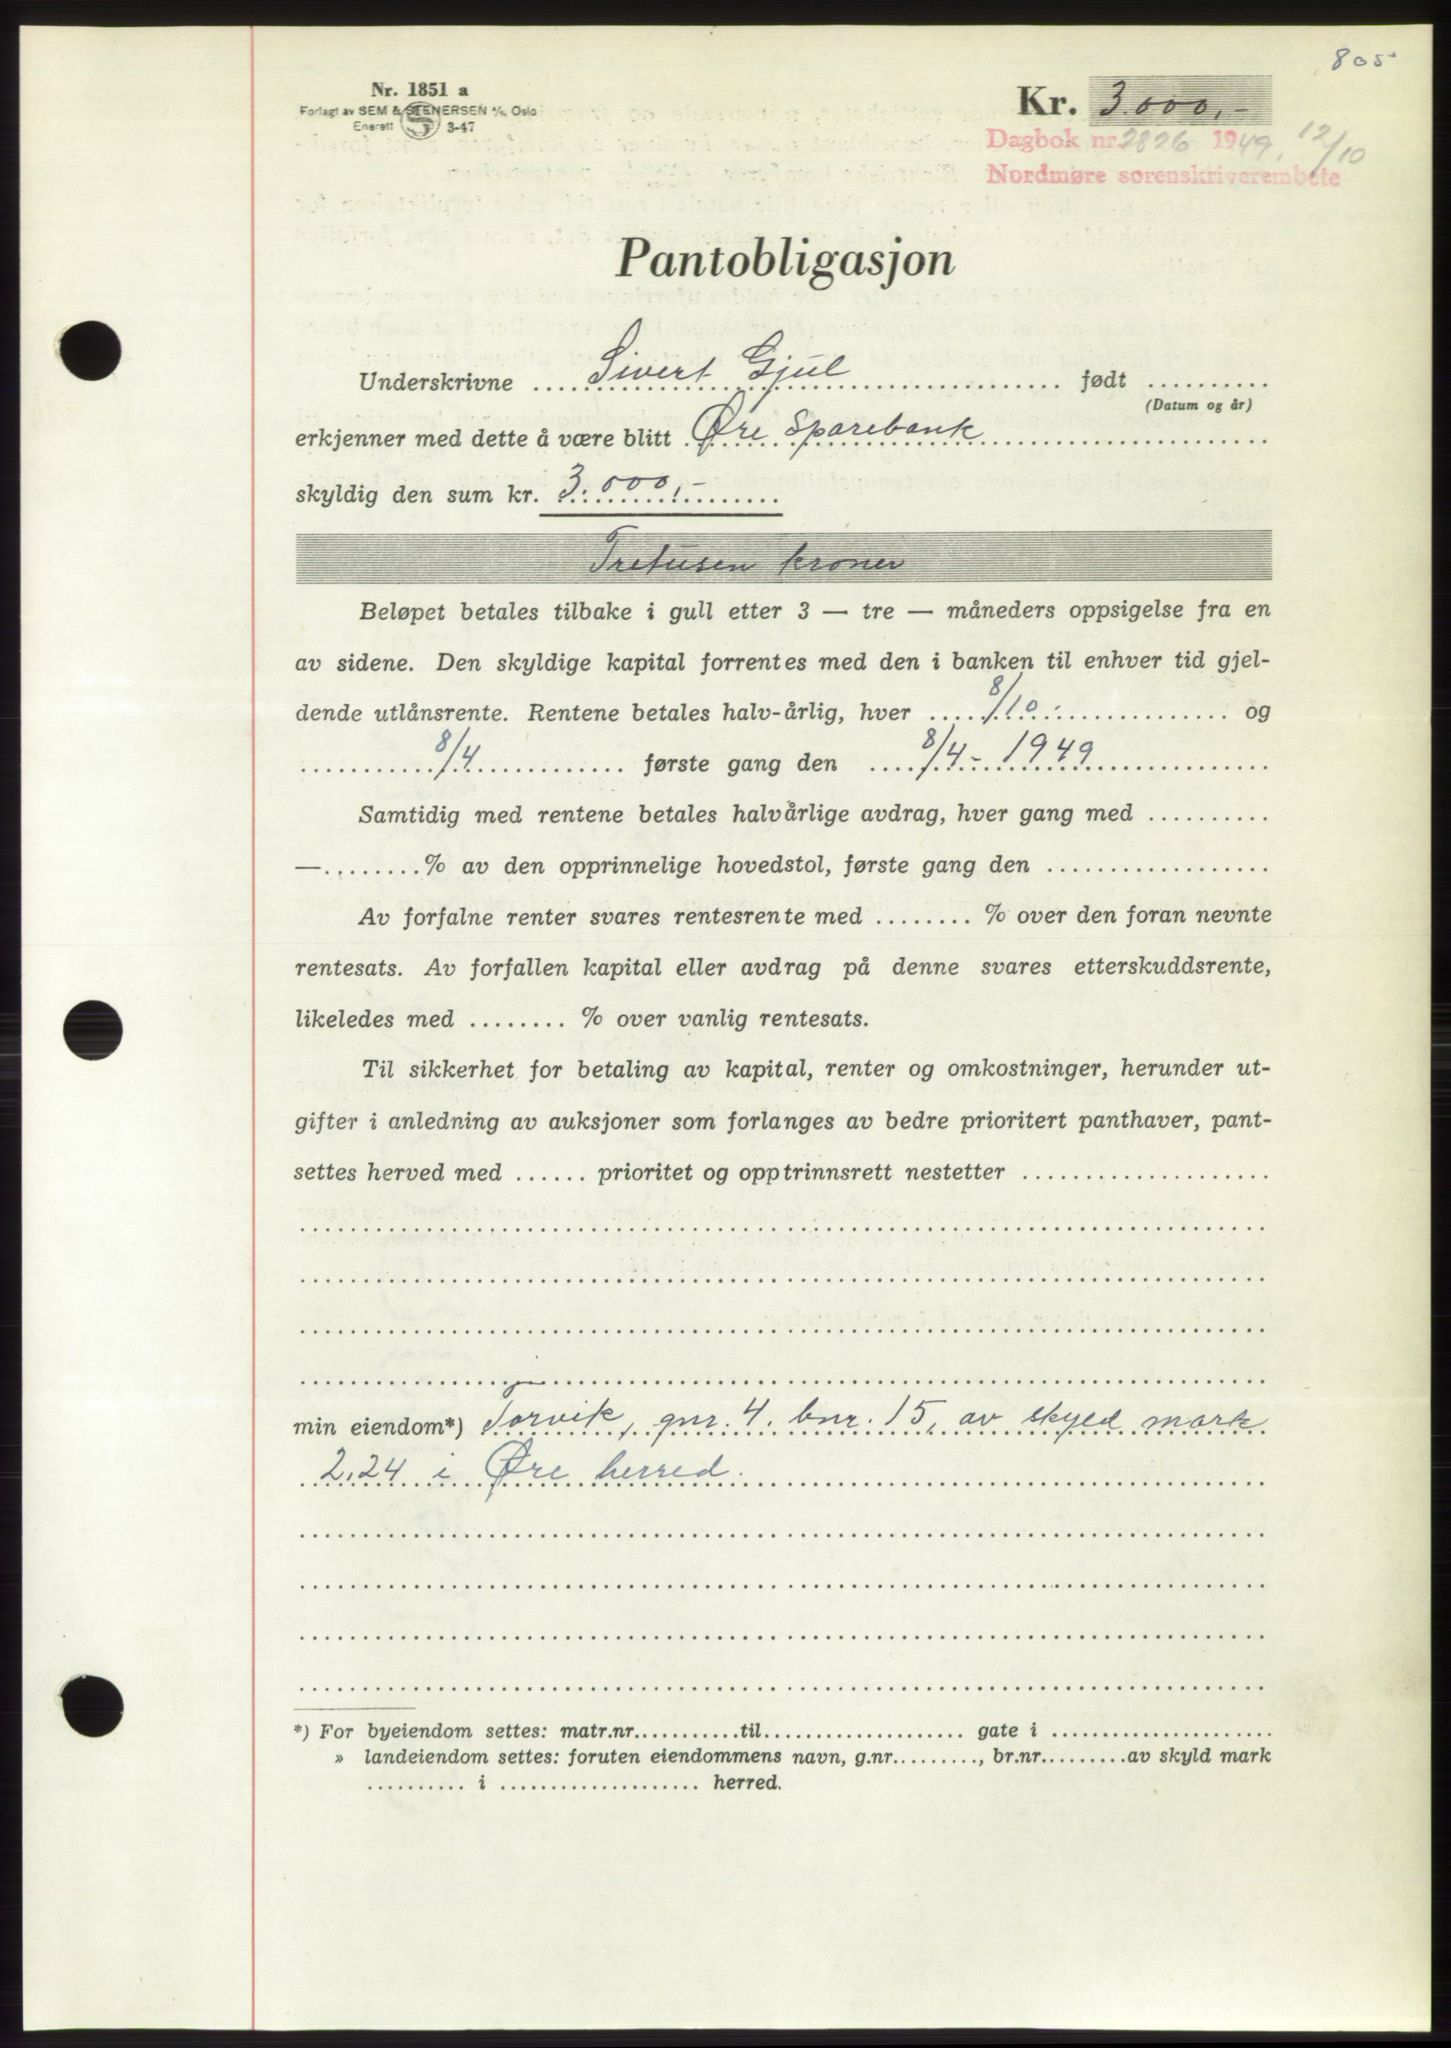 805
Nr. 1851 a
Forlagt av SEM & STENERSEN A/S, Oslo
Enerett 3-47
Kr. 3.000,-
Dagbok nr. 2826 1949, 12/10
Nordmøre sorenskriverembete
Pantobligasjon
Underskrivne Sivert Gjül født
(Datum og år)
erkjenner med dette å være blitt Øre Sparebank
skyldig den sum kr. 3.000,-
Tretusen kroner
Beløpet betales tilbake i gull etter 3 — tre — måneders oppsigelse fra en
av sidene. Den skyldige kapital forrentes med den i banken til enhver tid gjel-
dende utlånsrente. Rentene betales halv-årlig, hver 8/10 og
8/4 første gang den 8/4 - 1949
Samtidig med rentene betales halvårlige avdrag, hver gang med
— % av den opprinnelige hovedstol, første gang den
Av forfalne renter svares rentesrente med % over den foran nevnte
rentesats. Av forfallen kapital eller avdrag på denne svares etterskuddsrente,
likeledes med % over vanlig rentesats.
Til sikkerhet for betaling av kapital, renter og omkostninger, herunder ut-
gifter i anledning av auksjoner som forlanges av bedre prioritert panthaver, pant-
settes herved med prioritet og opptrinnsrett nestetter
min eiendom*) Torvik, gnr. 4. bnr. 15, av skyld mark
2,24 i Øre herred.
*) For byeiendom settes: matr.nr. til gate i
» landeiendom settes: foruten eiendommens navn, g.nr. , br.nr. av skyld mark
i herred.